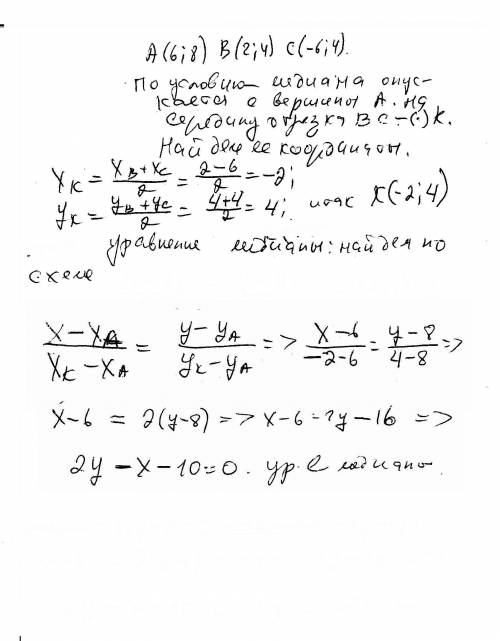 A(6;8) B(2;4) C(-6;4).
По условию медиана опус-
кается с вершины A. на
середину отрезка BC - (·) K.
Найдем ее координаты.
X_K = (X_B + X_C)/2 = (2-6)/2 = -2;
y_K = (y_B + y_C)/2 = (4+4)/2 = 4; итак K(-2;4)
уравнение медианы: найдем по
схеме
(X - X_A)/(X_K - X_A) = (y - y_A)/(y_K - y_A) => (X-6)/(-2-6) = (y-8)/(4-8) =>
X-6 = 2(y-8) => X-6 = 2y-16 =>
2y - X - 10 = 0. ур-е медианы